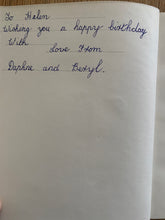 To Helen
Wishing you a happy birthday
With
Love From
Daphne and Beryl.